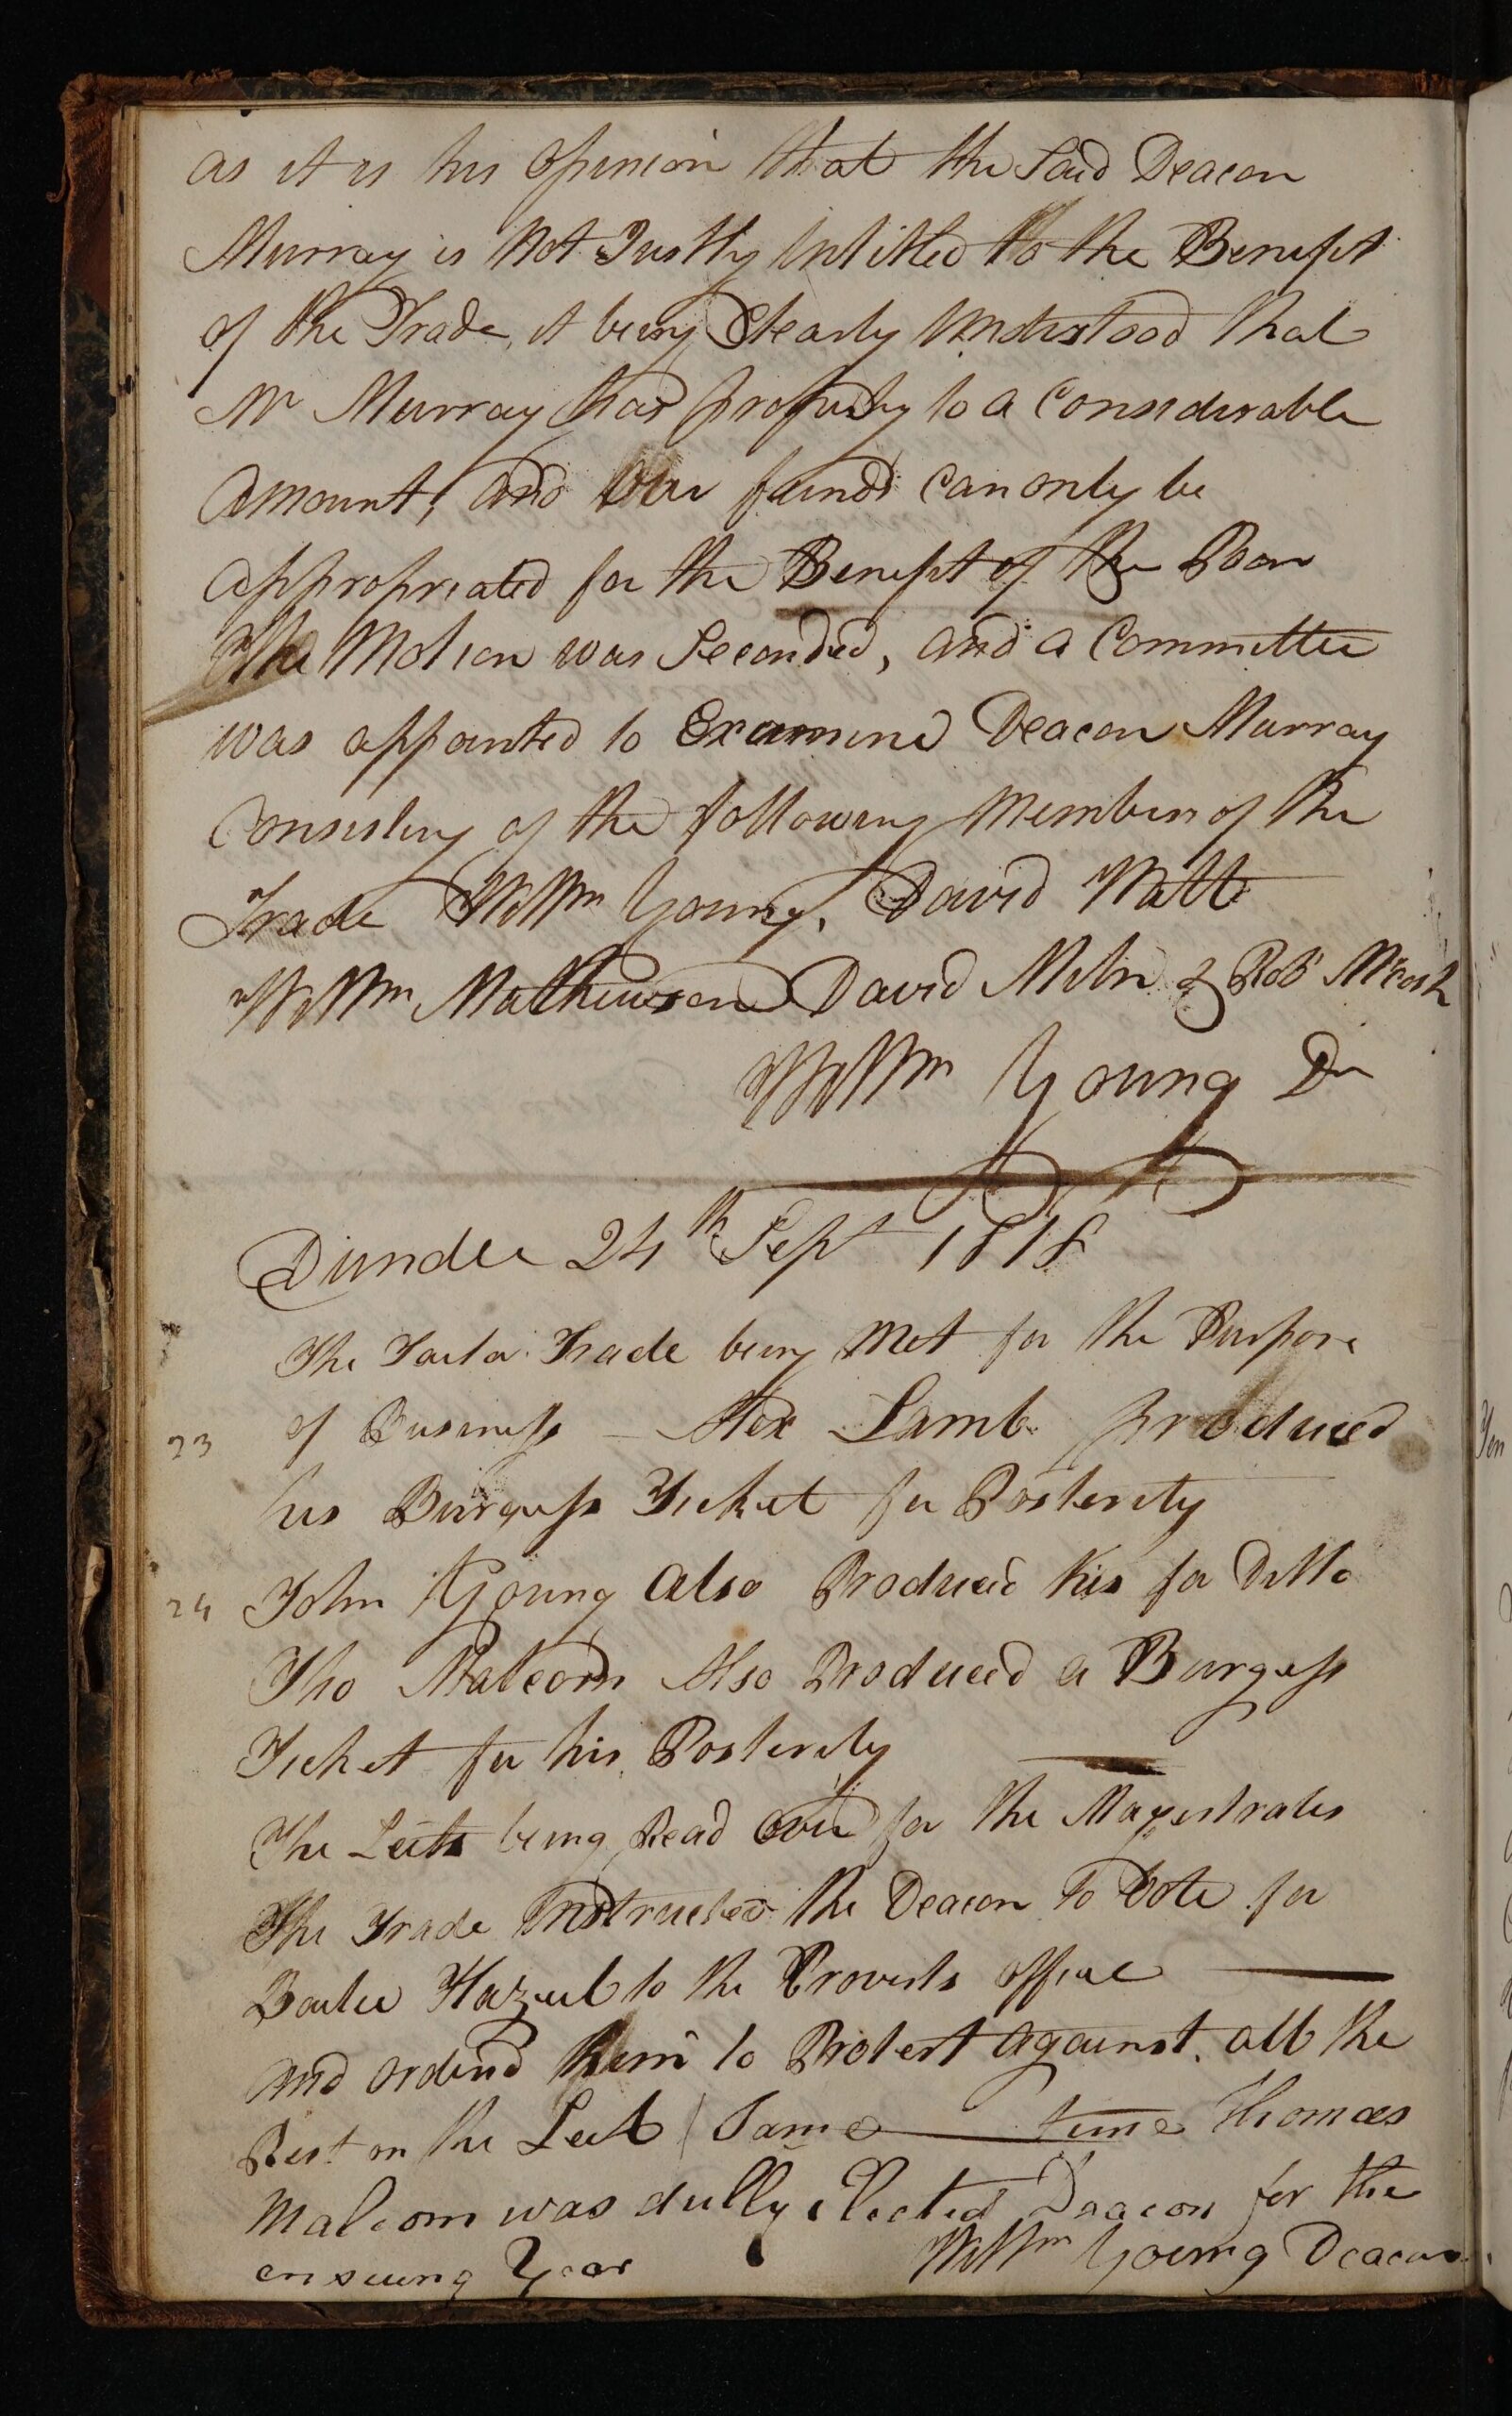 as it is his Opinion that the Said Deacon
Murray is Not Justly Intitled to the Benefit
of the Trade, it being Clearly Understood that
Mr Murray has property to a Considerable
Amount, and Our funds can only be
appropriated for the Benefit of the Poor
The Motion was Seconded, and a Committee
was appointed to Examine Deacon Murray
Consisting of the following Members of the
Trade Willm Young, David Watt
Willm Mathewson David Miln & Robt
Willm Young Dn
Dundee 24th Sept 1818
The Tailor Trade being Met for the Purpose
23 of Business – Alex Lamb produced
his Burgess Ticket for Posterity
24 John Young also Produced his for Ditto
Tho Malcom Also Produced a Burgess
Ticket for his Posterity
The Leets being Read over for the Magistrates
The Trade Instructed the Deacon to Vote for
Bailie Hazeel to the Provests office
and ordend him to Protest against all the
Rest on the Leet / Same time Thomas
Malcom was dully Elected Deacon for the
ensuing Year Willm Young Deacon